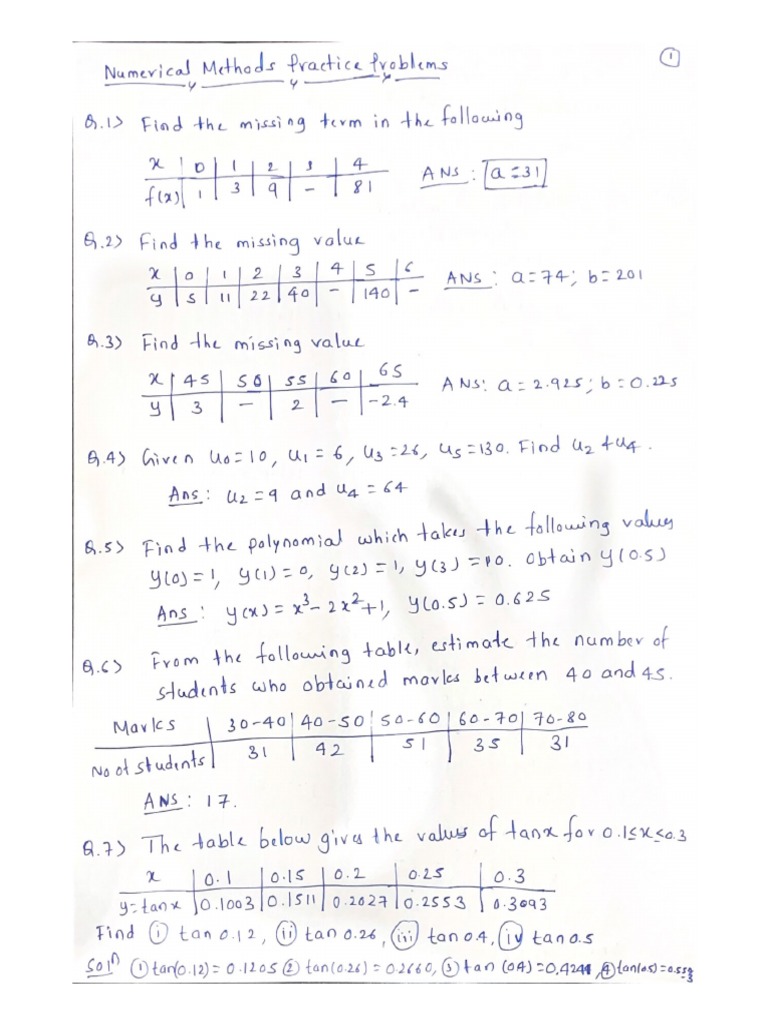 Numerical Methods Practice Problems
1
Q.1) Find the missing term in the following
x 0 1 2 3 4
f(x) 1 3 9 - 81
ANS : a=31
Q.2) Find the missing value
x 0 1 2 3 4 5 6
y 5 11 22 40 - 140 -
ANS : a=74; b=201
Q.3) Find the missing value
x 45 50 55 60 65
y 3 - 2 - -2.4
ANS: a=2.925; b=0.225
Q.4) Given u0=10, u1=6, u3=26, u5=130. Find u2 & u4.
Ans : u2=9 and u4=64
Q.5) Find the polynomial which takes the following values
y(0)=1, y(1)=0, y(2)=1, y(3)=10. Obtain y(0.5)
Ans : y(x)=x³-2x²+1, y(0.5)=0.625
Q.6) From the following table, estimate the number of
students who obtained marks between 40 and 45.
Marks 30-40 40-50 50-60 60-70 70-80
No of students 31 42 51 35 31
ANS : 17.
Q.7) The table below gives the values of tanx for 0.1≤x≤0.3
x 0.1 0.15 0.2 0.25 0.3
y=tanx 0.1003 0.1511 0.2027 0.2553 0.3093
Find (i) tan 0.12, (ii) tan 0.26, (iii) tan 0.4, (iv) tan 0.5
Solⁿ (1) tan(0.12)=0.1205 (2) tan(0.26)=0.2660, (3) tan(0.4)=0.4241, (4) tan(0.5)=0.5543